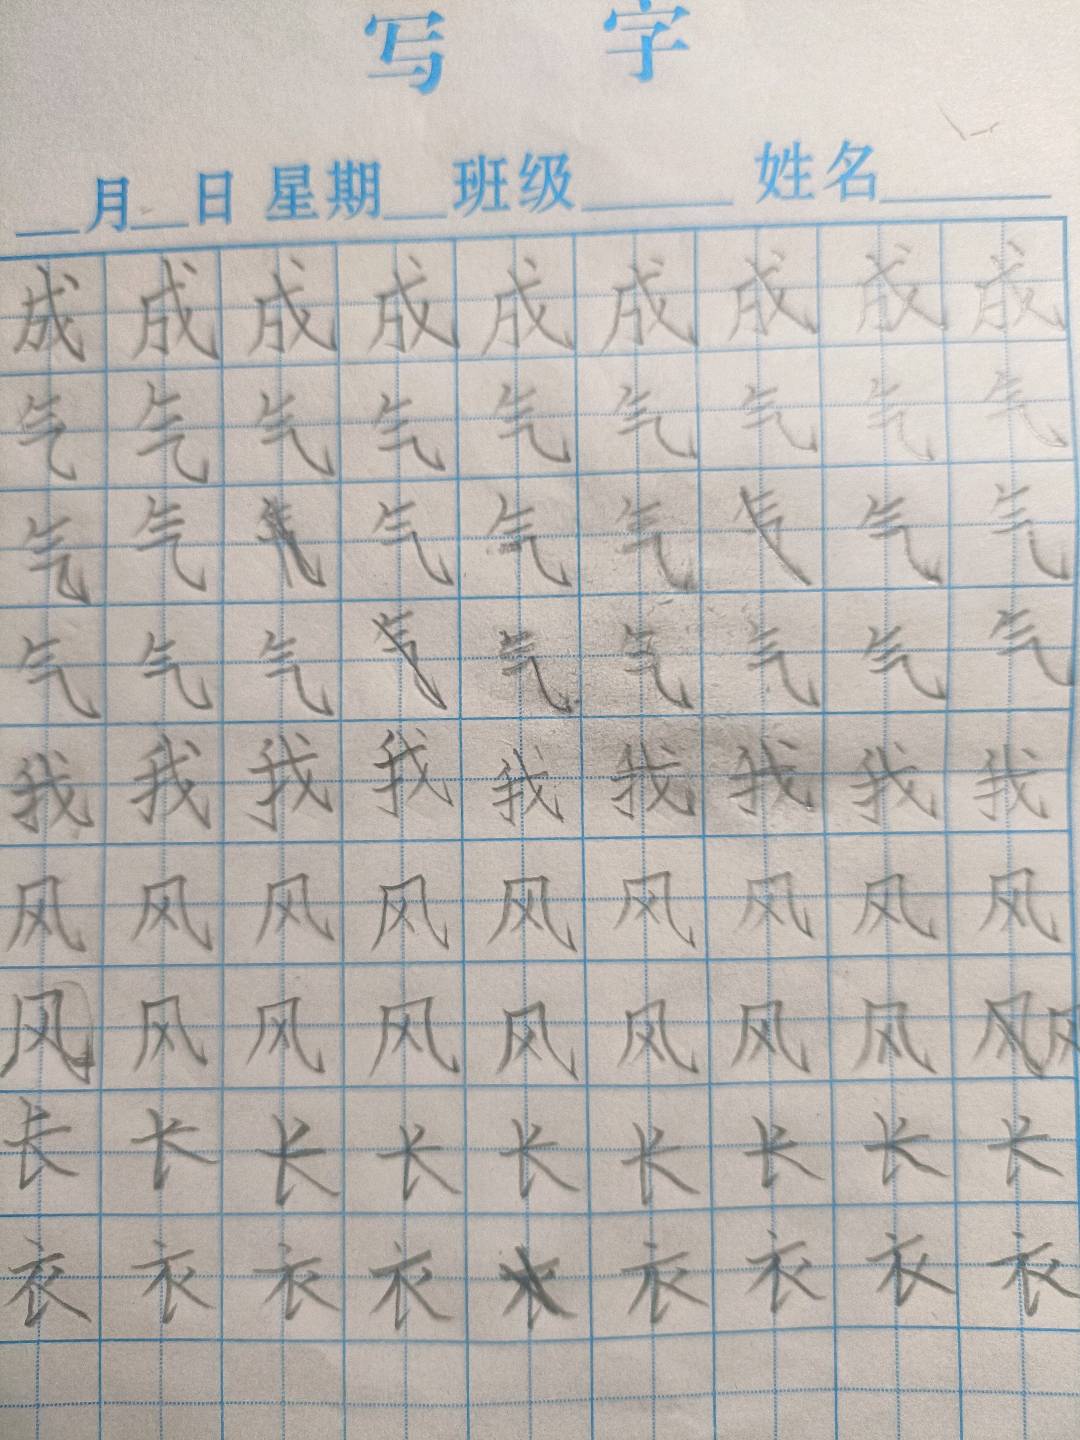 写 字
__月__日 星期__班级_____ 姓名______
成 成 成 成 成 成 成 成 成
气 气 气 气 气 气 气 气 气
气 气 气 气 气 气 气 气 气
气 气 气 气 气 气 气 气 气
我 我 我 我 我 我 我 我 我
风 风 风 风 风 风 风 风 风
风 风 风 风 风 风 风 风 风 风
长 长 长 长 长 长 长 长 长
衣 衣 衣 衣 衣 衣 衣 衣 衣